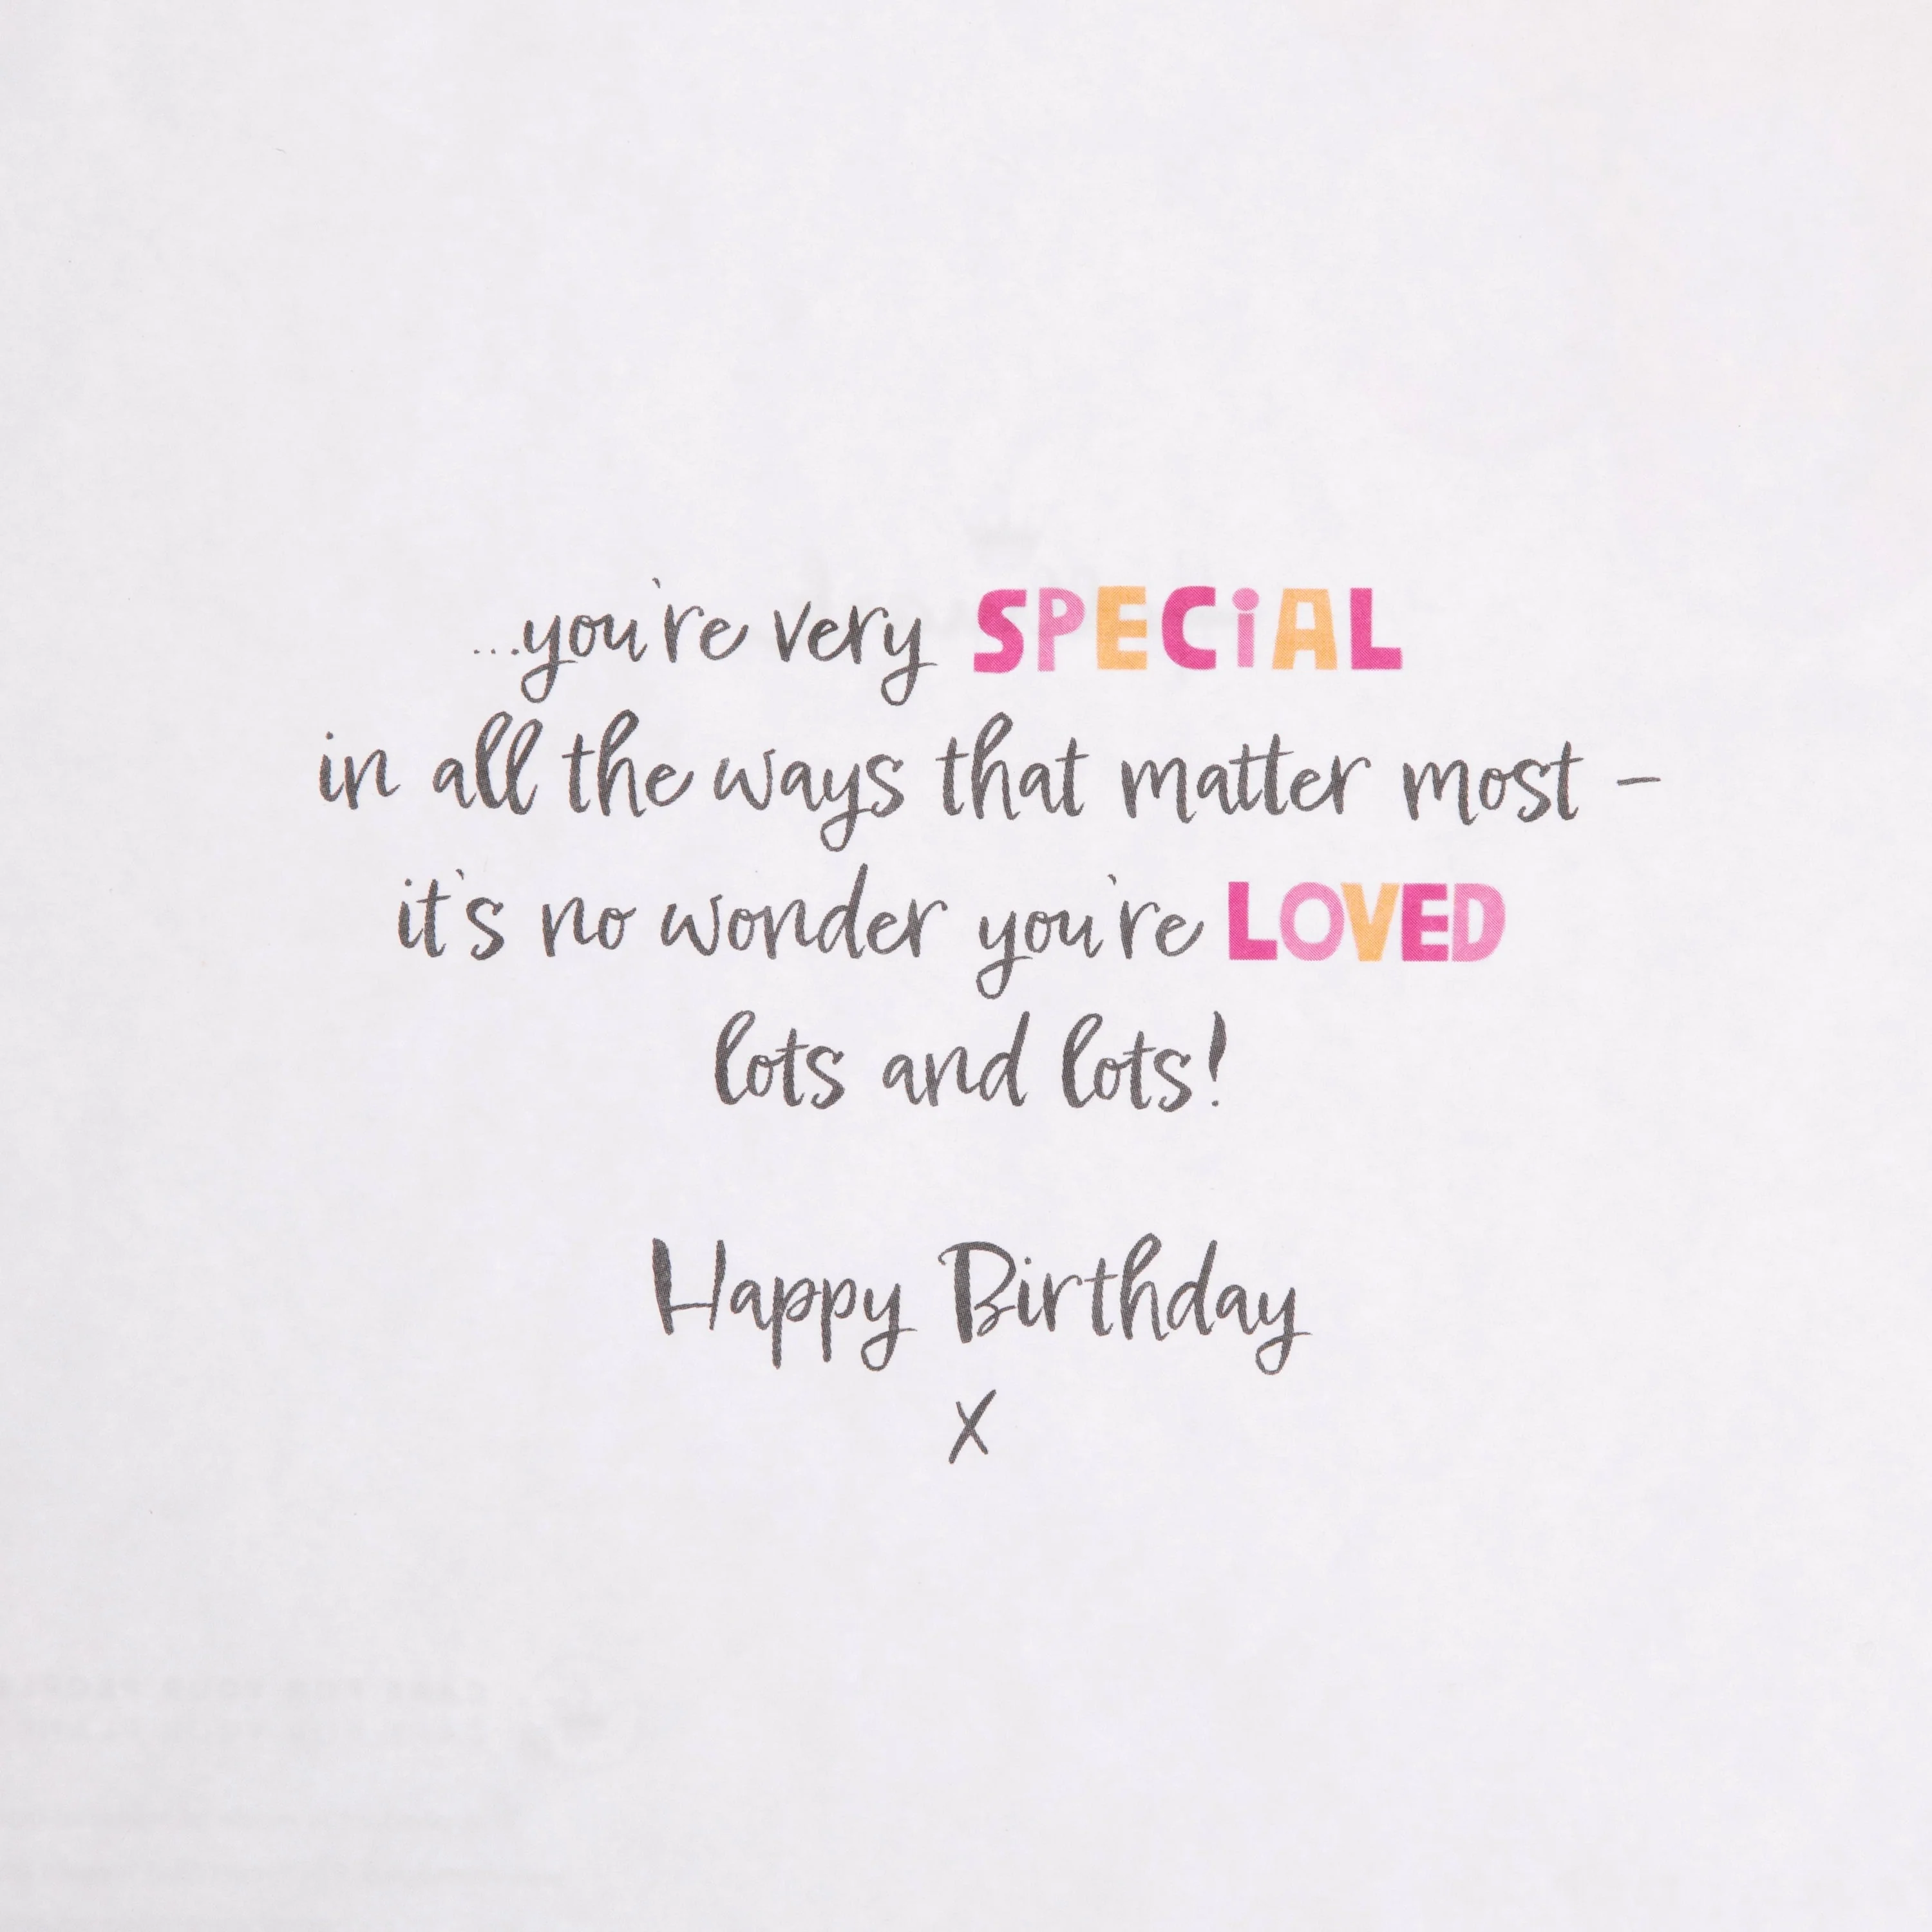 ...you're very SPECiAL
in all the ways that matter most –
it's no wonder you're LOVED
lots and lots!
Happy Birthday
X